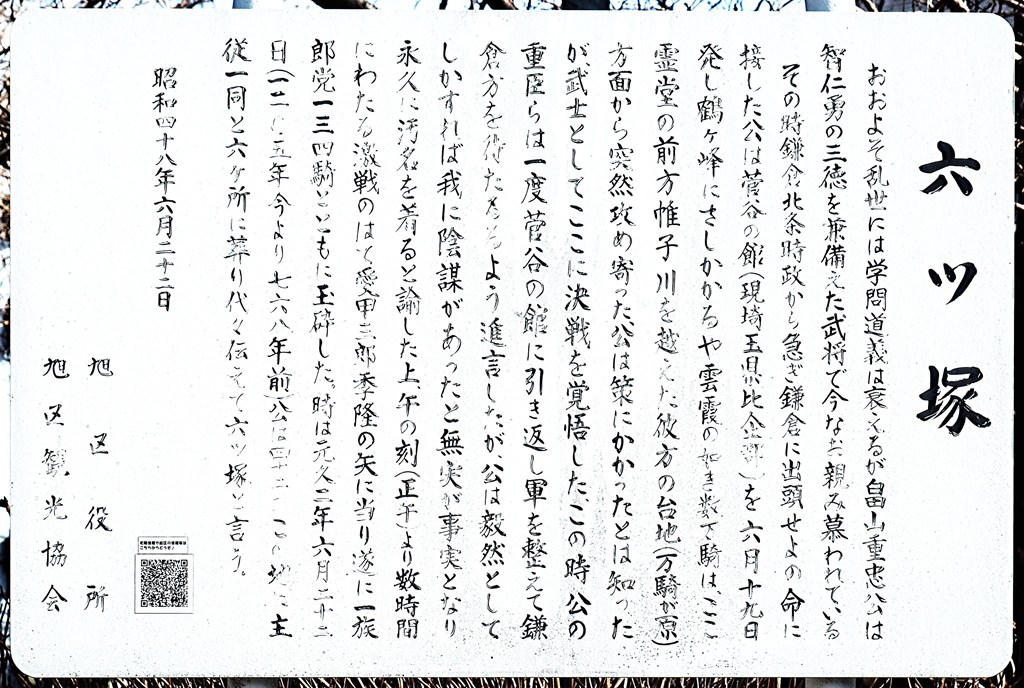 六ツ塚
おおよそ乱世には学問道義は衰えるが畠山重忠公は
智仁勇の三徳を兼備えた武将で今なお親み慕われている
その時鎌倉北条時政から急ぎ鎌倉に出頭せよの命に
接した公は菅谷の館(現埼玉県比企郡)を六月十九日
発し鶴ヶ峰にさしかかるや雲霞の如き数万騎は、ここ
霊堂の前方帷子川を越えた彼方の台地(万騎が原)
方面から突然攻め寄った公は策にかかったとは知った
が、武士としてここに決戦を覚悟した、この時公の
重臣らは一度菅谷の館に引き返し軍を整えて鎌
倉方を待たれるよう進言したが、公は毅然として
しかすれば我に陰謀があったと無実が事実となり
永久に汚名を着ると諭した上、午の刻(正午)より数時間
にわたる激戦のはて愛甲三郎季隆の矢に当り遂に一族
郎党一三四騎とともに玉砕した。時は元久二年六月二十二
日(一二〇五年今より七六八年前)公は四十二 この地に主
従一同と六ヶ所に葬り代々伝えて六ツ塚と言う。
昭和四十八年六月二十二日
旭区役所
旭区観光協会